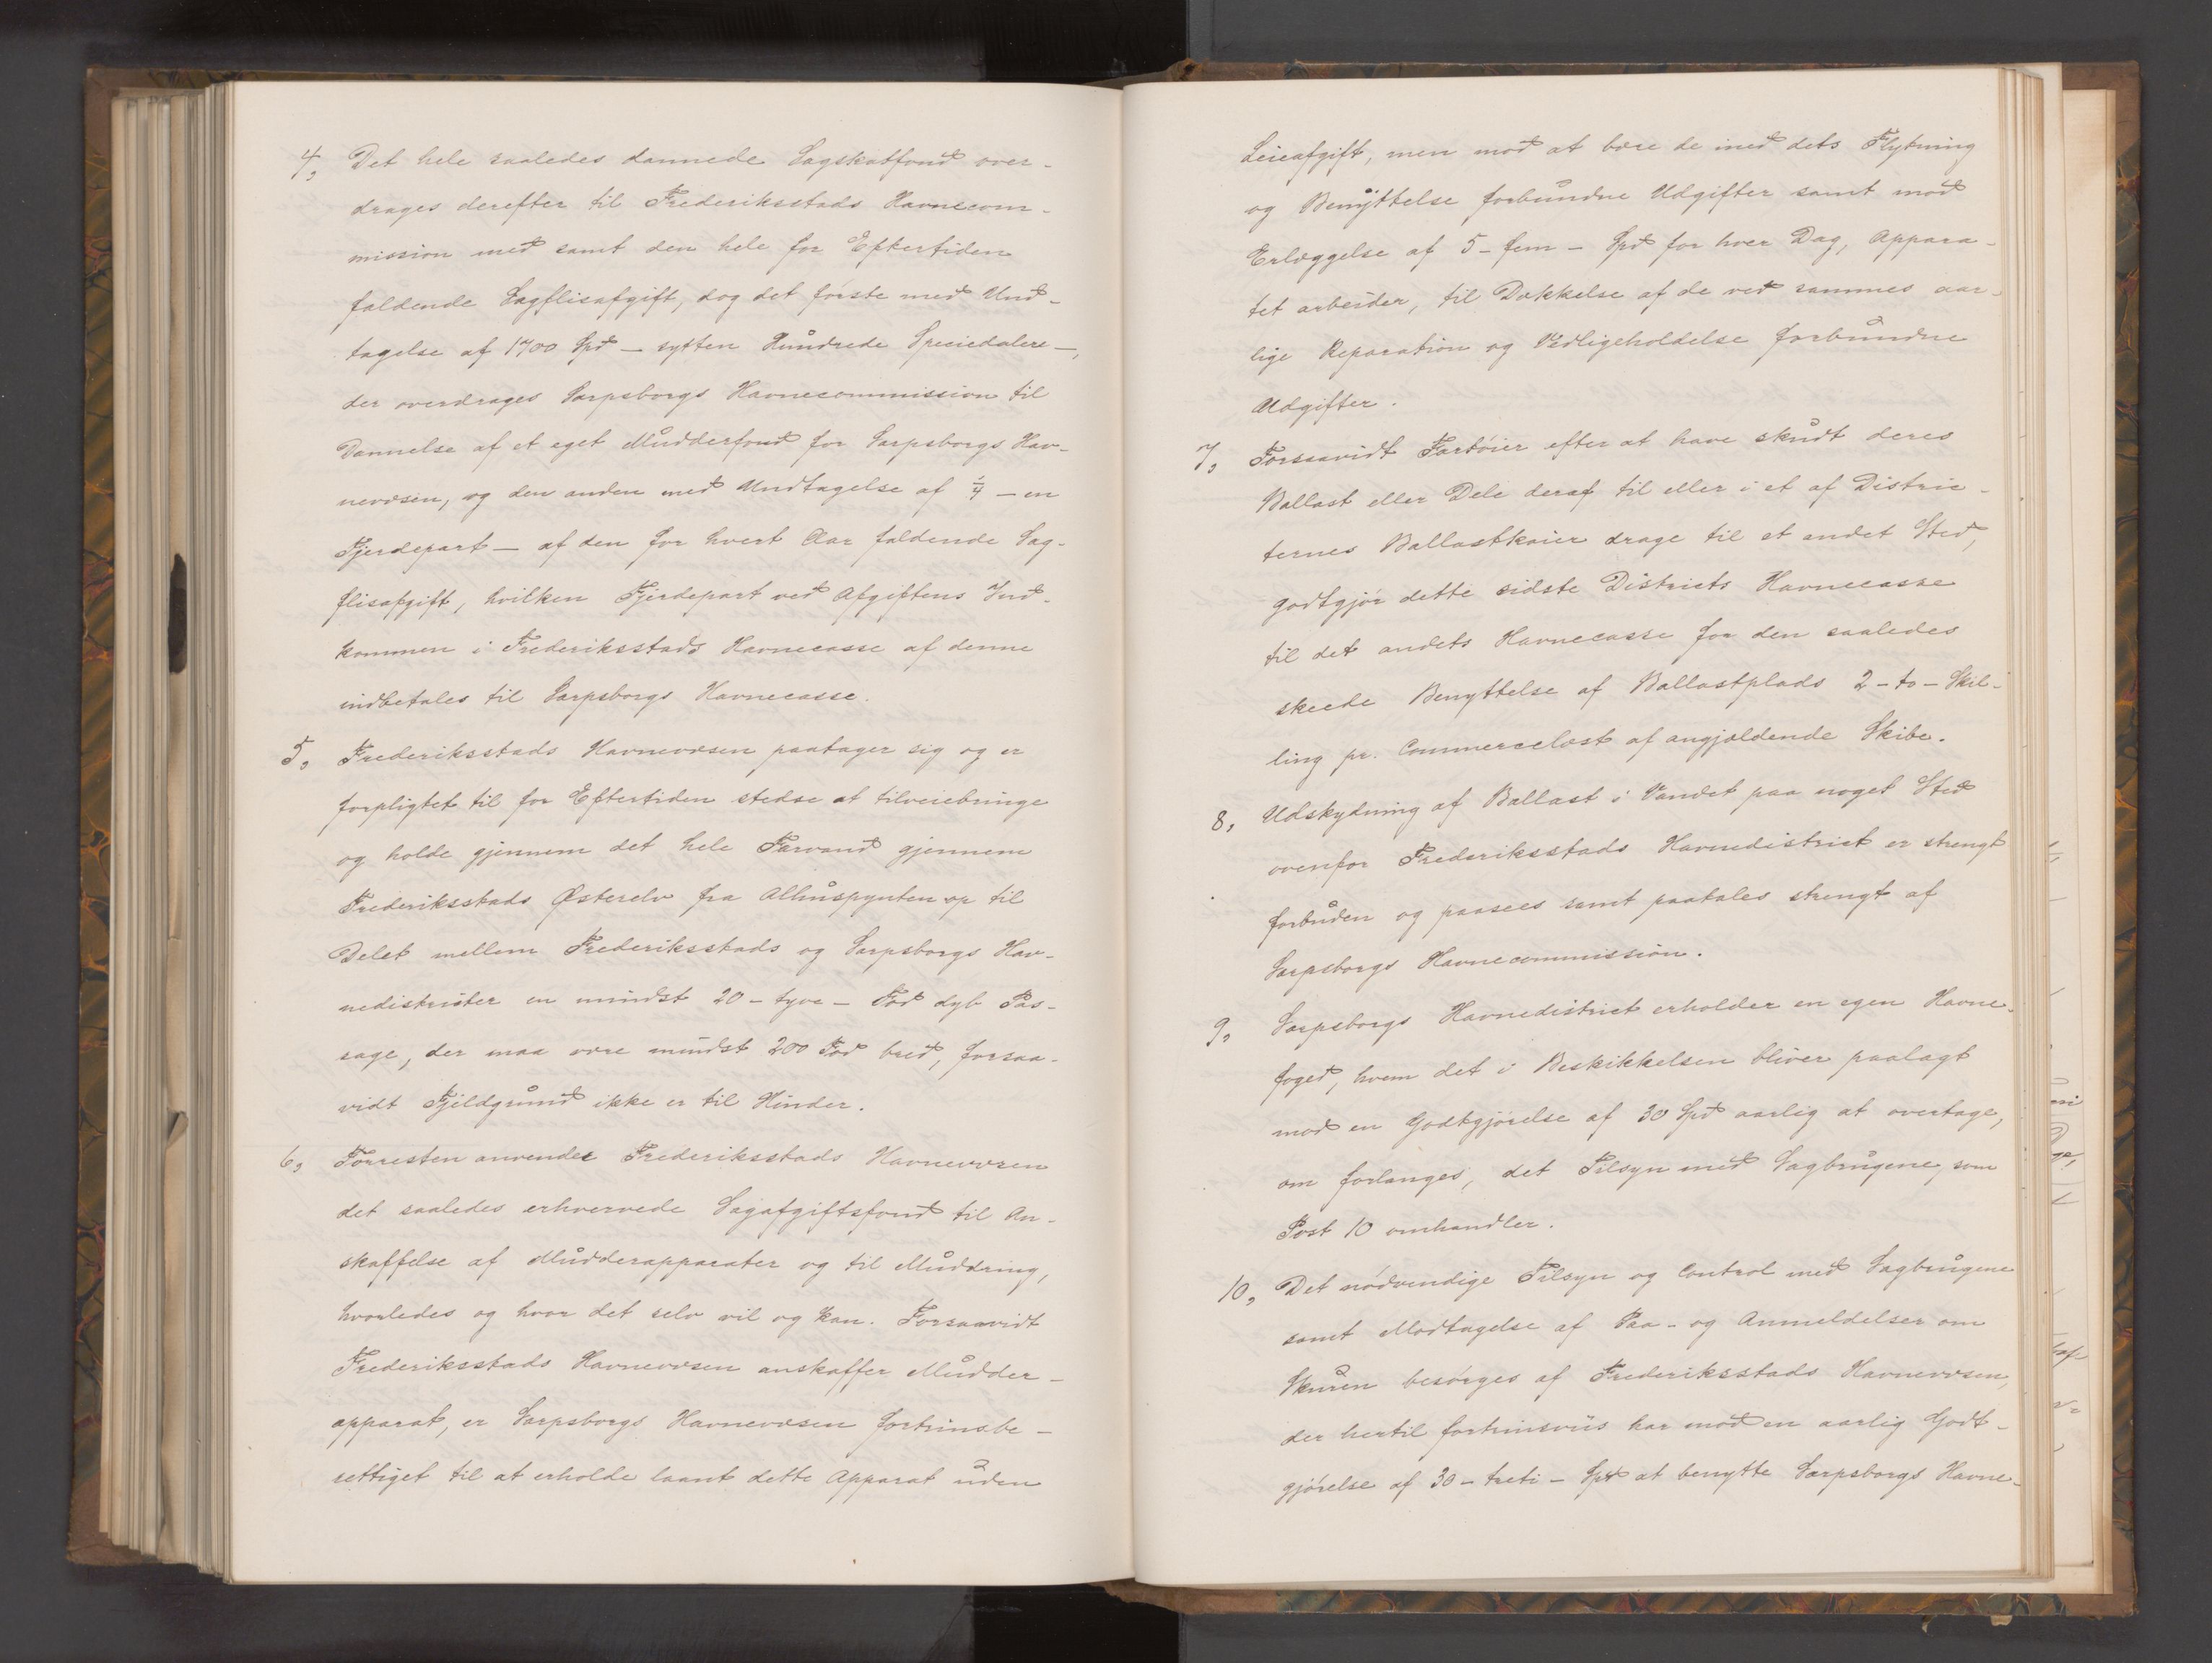 4, Det hele saaledes dannede Sagskatfond over-
drages derefter til Frederiksstads Havnecom-
mission med samt den hele for Eftertiden
faldende Sagflisafgift, dog det første med Und-
tagelse af 1700 Spd – sytten Hundrede Speciedalere –,
der overdrages Sarpsborgs Havnecommission til
Dannelse af et eget Mudderfond for Sarpsborgs Hav-
nevæsen, og den anden med Undtagelse af ¼ – en
Fjerdepart – af den for hvert Aar faldende Sag-
flisafgift, hvilken Fjerdepart ved Afgiftens Ind-
kommen i Frederiksstads Havnecasse af denne
indbetales til Sarpsborgs Havnecasse.
5, Frederiksstads Havnevæsen paatager sig og er
forpligtet til for Eftertiden stedse at tilveiebringe
og holde gjennem det hele Farvand gjennem
Frederiksstads Østerelv fra Alhuspynten op til
Delet mellem Frederiksstads og Sarpsborgs Hav-
nedistrikter en mindst 20 – tyve – Fod dyb Pas-
sage, der maa være mindst 200 Fod bred, forsaa-
vidt Fjeldgrund ikke er til Hinder.
6, Forresten anvender Frederiksstads Havnevæsen
det saaledes erhvervede Sagafgiftsfond til An-
skaffelse af Mudderapparater og til Muddring,
hvorledes og hvor det selv vil og kan. Forsaavidt
Frederiksstads Havnevæsen anskaffer Mudder-
apparat, er Sarpsborgs Havnevæsen fortrinsbe-
rettiget til at erholde laant dette Apparat uden
Leieafgift, men mod at bære de med dets Flytning
og Benyttelse forbundne Udgifter samt mod
Erlæggelse af 5 – fem – Spd for hver Dag, Appara-
tet arbeider, til Dækkelse af de ved sammes aar-
lige Reparation og Vedligeholdelse forbundne
Udgifter.
7, Forsaavidt Fartøier efter at have skudt deres
Ballast eller Dele deraf til eller i et af Distric-
ternes Ballastkaier drage til et andet Sted,
godtgjør dette sidste Districts Havnecasse
til det andets Havnecasse for den saaledes
skeede Benyttelse af Ballastplads 2 – to – Skil-
ling pr. Commercelæst af angjældende Skibe.
8, Udskydning af Ballast i Vandet paa noget Sted
ovenfor Frederiksstads Havnedistrict er strengt
forbuden og paasees samt paatales strengt af
Sarpsborgs Havnecommission.
9, Sarpsborgs Havnedistrict erholder en egen Havne-
foged, hvem det i Beskikkelsen bliver paalagt
mod en Godtgjørelse af 30 Spd aarlig at overtage,
om forlanges, det Tilsyn med Sagbrugene, som
Post 10 omhandler.
10, Det nødvendige Tilsyn og Control med Sagbrugene
samt Modtagelse af Paa- og Anmeldelser om
Skuren besørges af Frederiksstads Havnevæsen,
der hertil fortrinsviis har mod en aarlig Godt-
gjørelse af 30 – treti – Spd at benytte Sarpsborgs Havne-